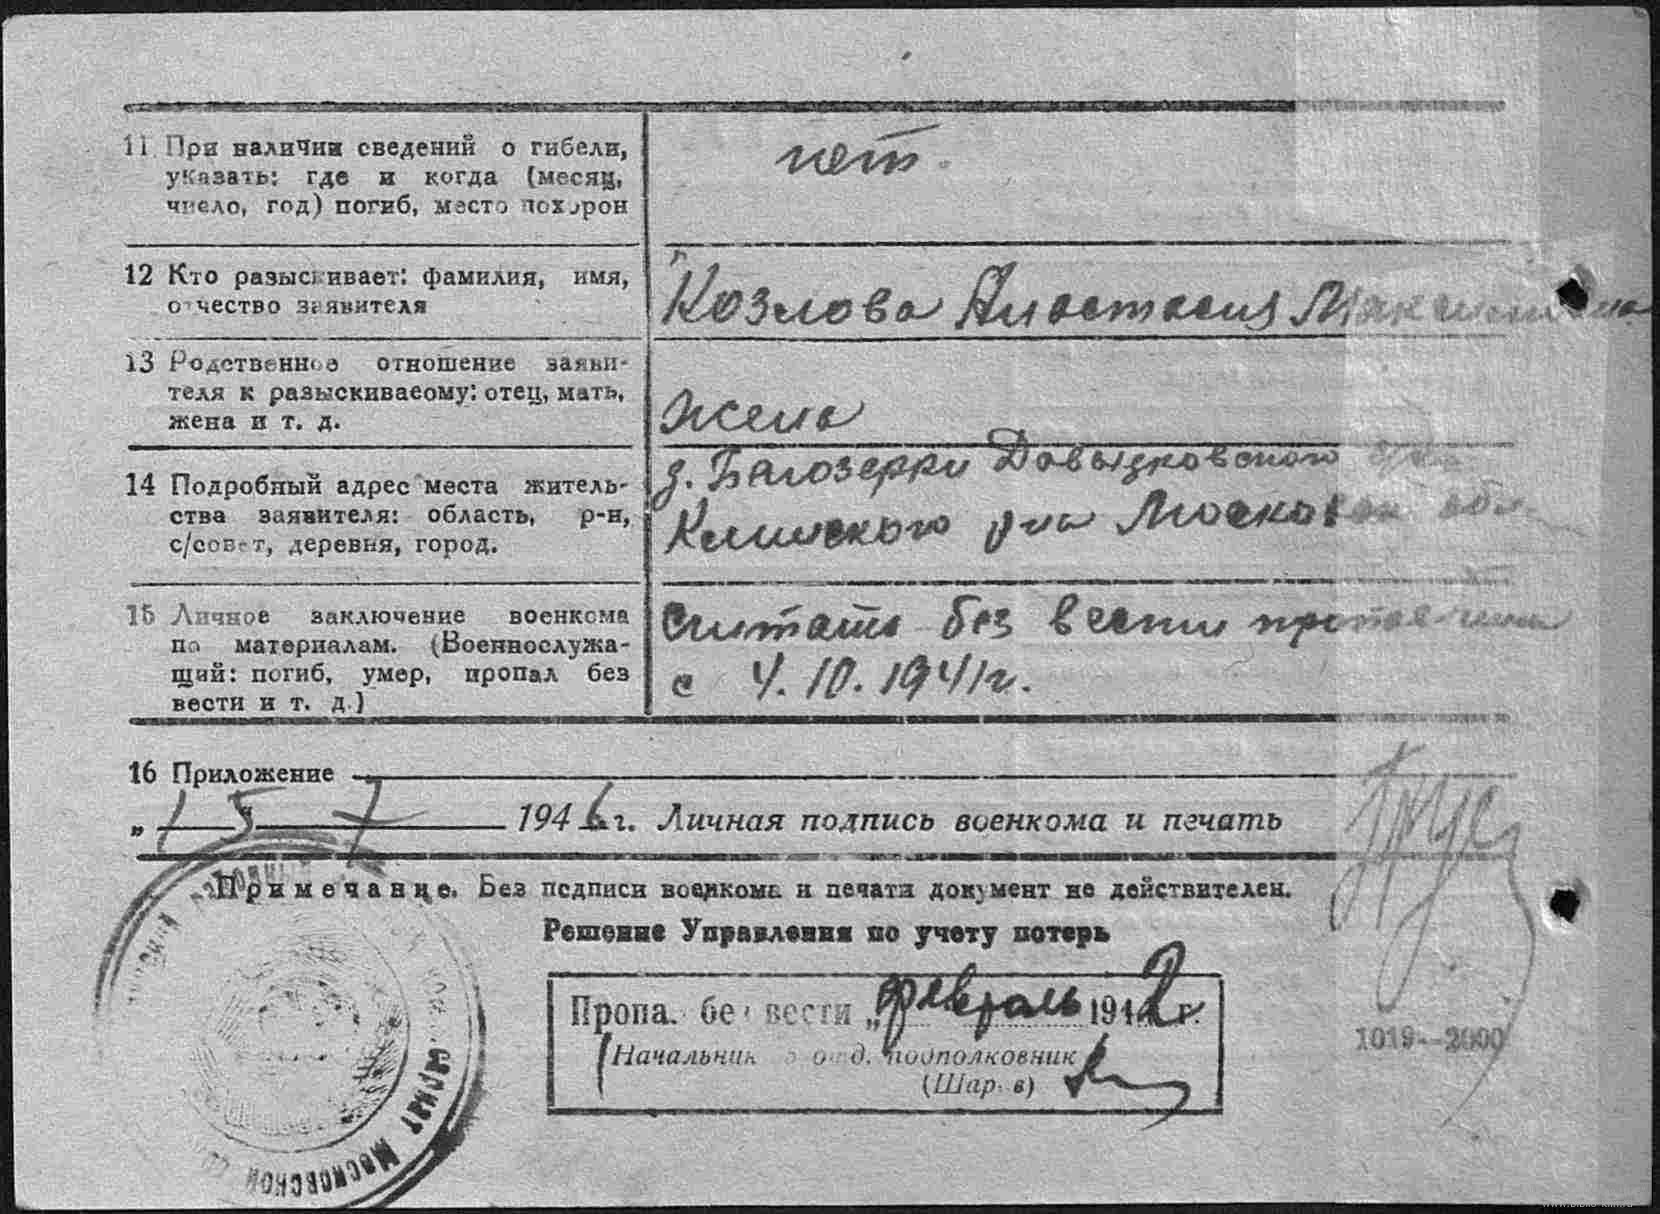 11. При наличии сведений о гибели,
указать: где и когда (месяц,
число, год) погиб, место похорон
нет.
12 Кто разыскивает: фамилия, имя,
отчество заявителя
Козлова Анастасия Максимовна
13 Родственное отношение заяви-
теля к разыскиваемому: отец, мать,
жена и т. д.
жена
14 Подробный адрес места житель-
ства заявителя: область, р-н,
с/совет, деревня, город.
д. Белозерки Давыдковского с/с
Клинского р-на Московской обл.
15 Личное заключение военкома
по материалам. (Военнослужа-
щий: погиб, умер, пропал без
вести и т. д.)
Считать без вести пропавшим
с 4.10.1941г.
16 Приложение
„15 7 1946 г. Личная подпись военкома и печать
Примечание. Без подписи военкома и печати документ не действителен.
Решение Управления по учету потерь
Пропал без вести „февраль 1942 г.
Начальник отд. подполковник
(Шаров)
1019—2000
Московской